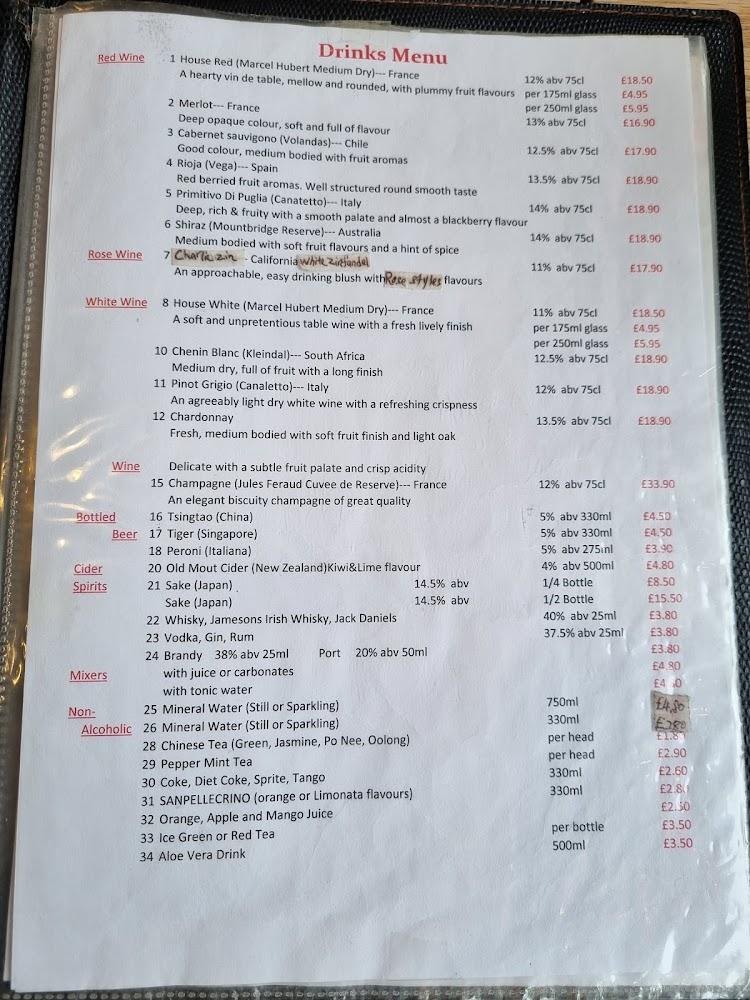 Drinks Menu
Red Wine 1 House Red (Marcel Hubert Medium Dry)--- France 12% abv 75cl £18.50
A hearty vin de table, mellow and rounded, with plummy fruit flavours per 175ml glass £4.95
per 250ml glass £5.95
2 Merlot--- France 13% abv 75cl £16.90
Deep opaque colour, soft and full of flavour
3 Cabernet sauvigono (Volandas)--- Chile 12.5% abv 75cl £17.90
Good colour, medium bodied with fruit aromas
4 Rioja (Vega)--- Spain 13.5% abv 75cl £18.90
Red berried fruit aromas. Well structured round smooth taste
5 Primitivo Di Puglia (Canatetto)--- Italy 14% abv 75cl £18.90
Deep, rich & fruity with a smooth palate and almost a blackberry flavour
6 Shiraz (Mountbridge Reserve)--- Australia 14% abv 75cl £18.90
Medium bodied with soft fruit flavours and a hint of spice
Rose Wine 7 Charlie zin - California White Zinfandel 11% abv 75cl £17.90
An approachable, easy drinking blush with Rose styles flavours
White Wine 8 House White (Marcel Hubert Medium Dry)--- France 11% abv 75cl £18.50
A soft and unpretentious table wine with a fresh lively finish per 175ml glass £4.95
per 250ml glass £5.95
10 Chenin Blanc (Kleindal)--- South Africa 12.5% abv 75cl £18.90
Medium dry, full of fruit with a long finish
11 Pinot Grigio (Canaletto)--- Italy 12% abv 75cl £18.90
An agreeably light dry white wine with a refreshing crispness
12 Chardonnay 13.5% abv 75cl £18.90
Fresh, medium bodied with soft fruit finish and light oak
Wine Delicate with a subtle fruit palate and crisp acidity
15 Champagne (Jules Feraud Cuvee de Reserve)--- France 12% abv 75cl £33.90
An elegant biscuity champagne of great quality
Bottled 16 Tsingtao (China) 5% abv 330ml £4.50
Beer 17 Tiger (Singapore) 5% abv 330ml £4.50
18 Peroni (Italiana) 5% abv 275ml £3.90
Cider 20 Old Mout Cider (New Zealand)Kiwi&Lime flavour 4% abv 500ml £4.80
Spirits 21 Sake (Japan) 14.5% abv 1/4 Bottle £8.50
Sake (Japan) 14.5% abv 1/2 Bottle £15.50
22 Whisky, Jamesons Irish Whisky, Jack Daniels 40% abv 25ml £3.80
23 Vodka, Gin, Rum 37.5% abv 25ml £3.80
24 Brandy 38% abv 25ml Port 20% abv 50ml £3.80
Mixers with juice or carbonates £4.80
with tonic water
Non- 25 Mineral Water (Still or Sparkling) 750ml £4.80
Alcoholic 26 Mineral Water (Still or Sparkling) 330ml £2.80
28 Chinese Tea (Green, Jasmine, Po Nee, Oolong) per head
29 Pepper Mint Tea per head £2.90
30 Coke, Diet Coke, Sprite, Tango 330ml £2.60
31 SANPELLECRINO (orange or Limonata flavours) 330ml £2.80
32 Orange, Apple and Mango Juice £2.50
33 Ice Green or Red Tea per bottle £3.50
34 Aloe Vera Drink 500ml £3.50